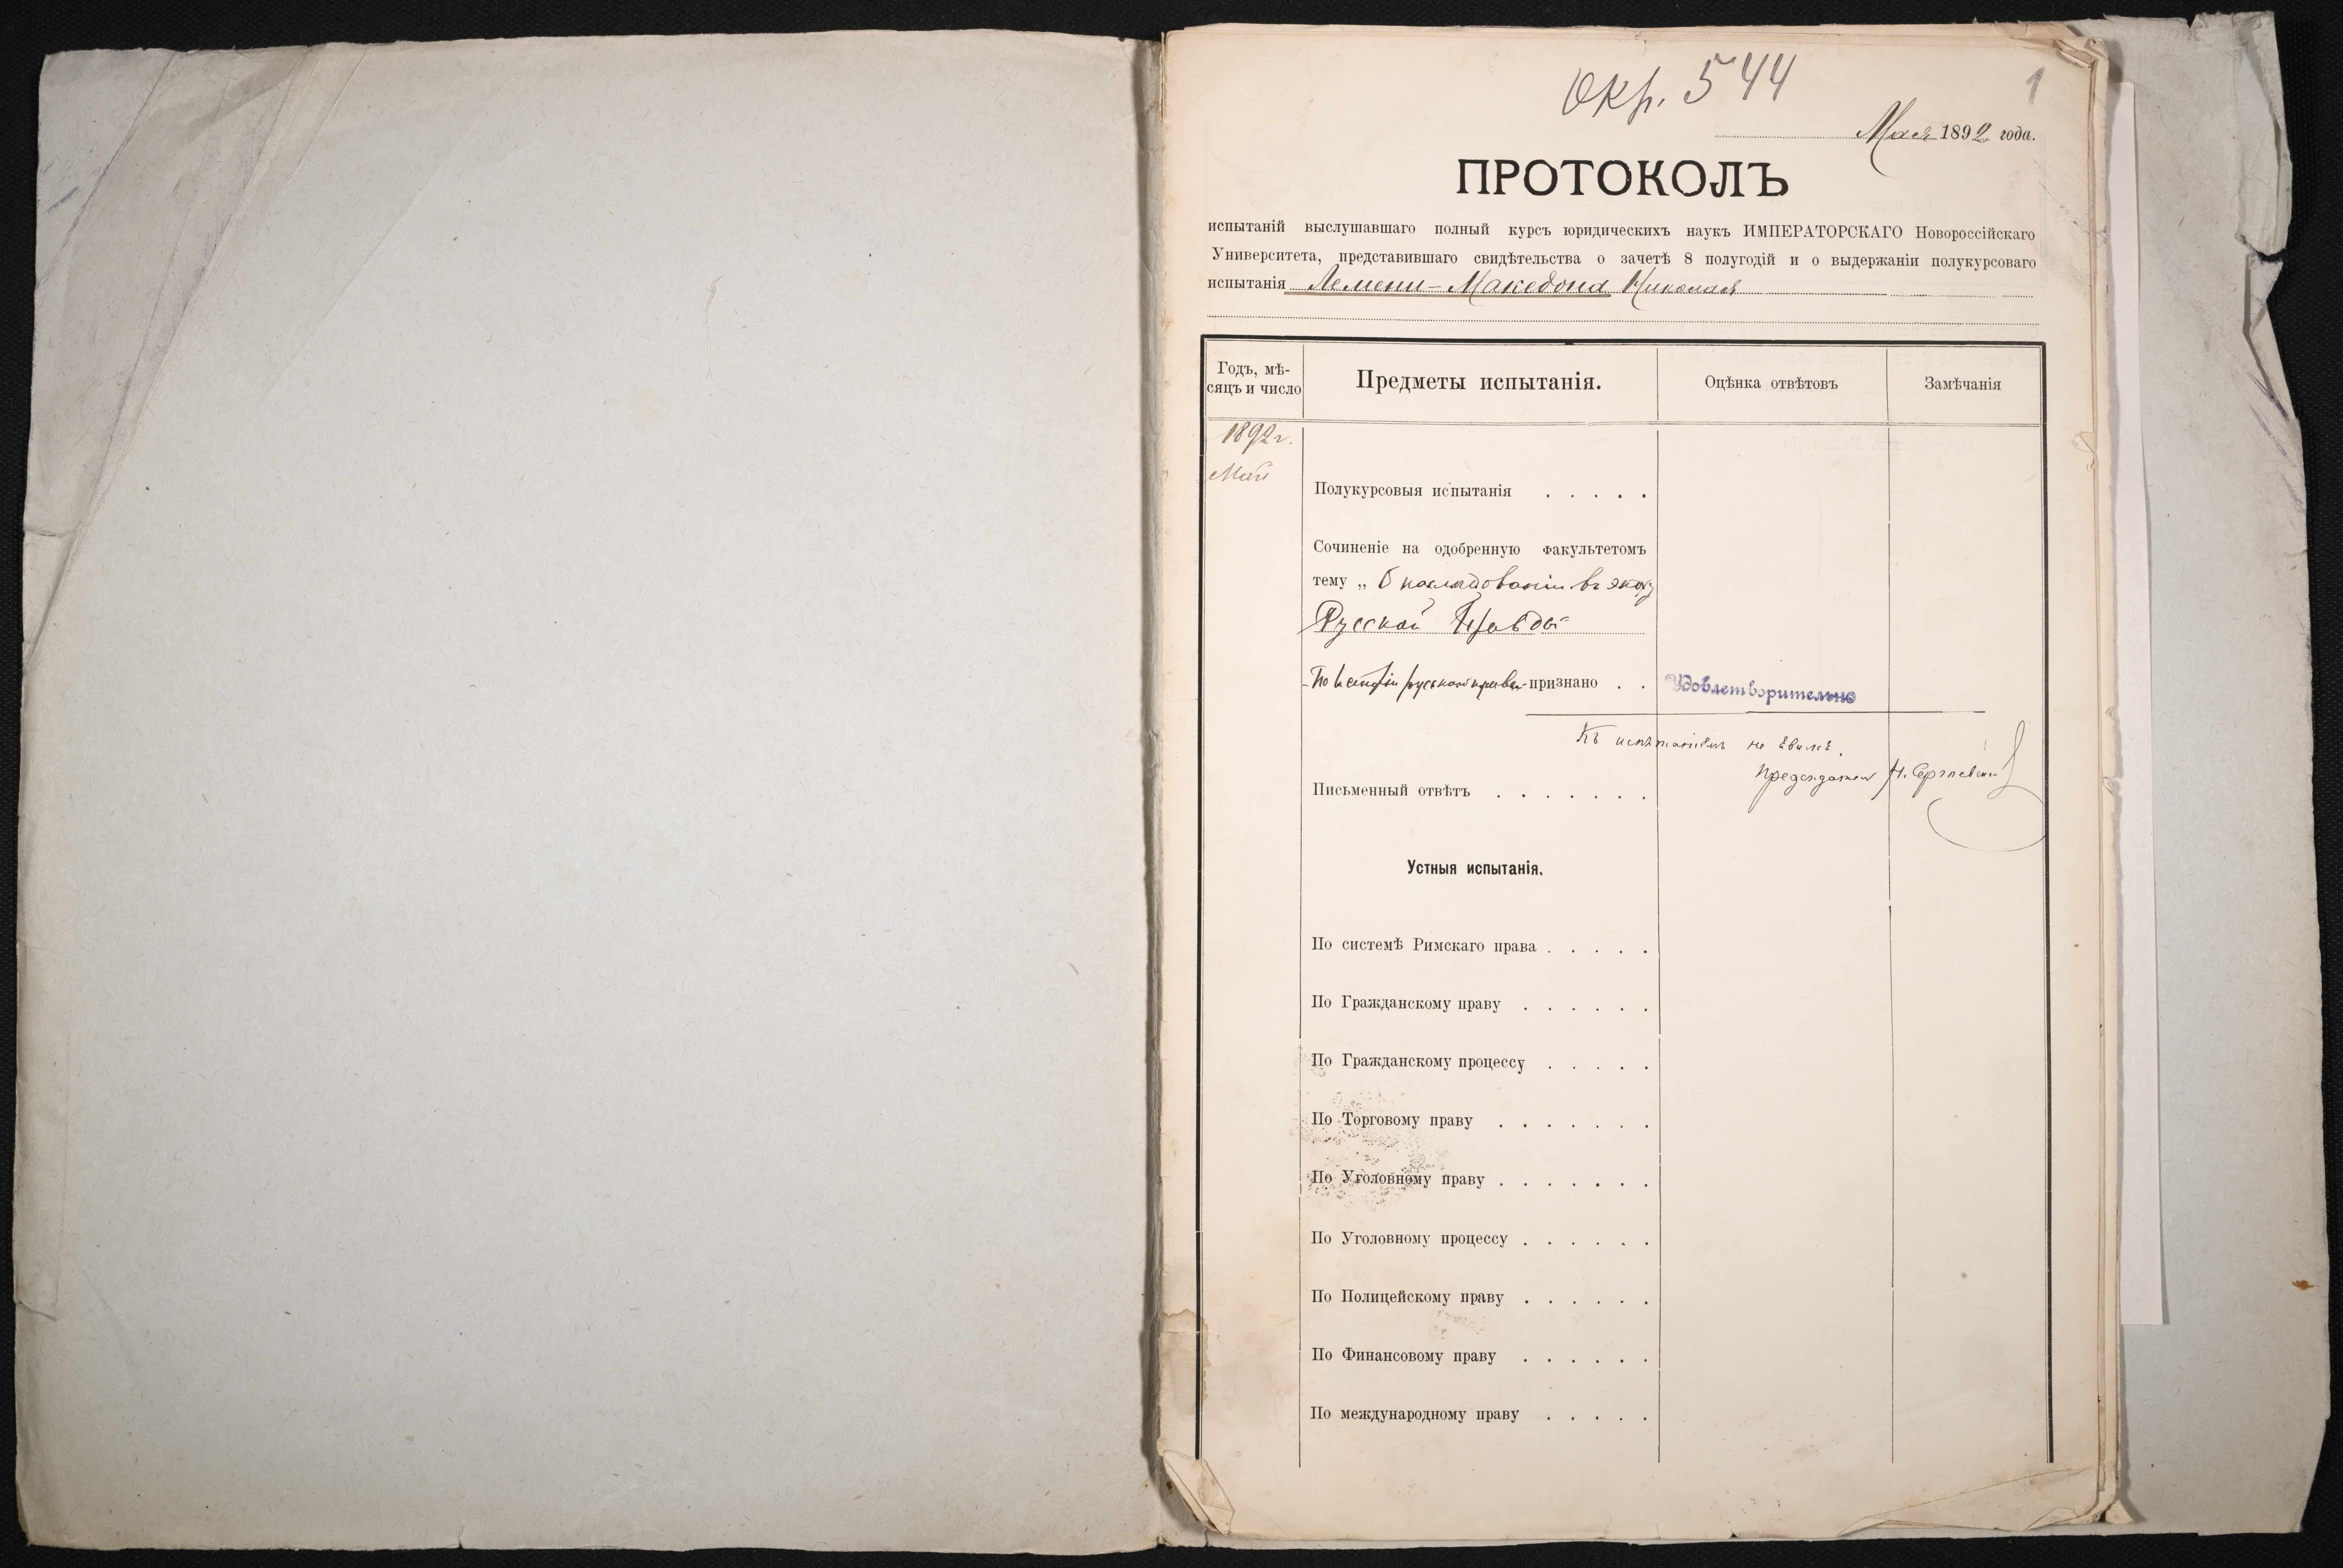 Окр. 544
1
Мая 1892 года.
ПРОТОКОЛЪ
испытаній выслушавшаго полный курсъ юридическихъ наукъ ИМПЕРАТОРСКАГО Новороссійскаго
Университета, представившаго свидѣтельства о зачетѣ 8 полугодій и о выдержаніи полукурсоваго
испытанія Лемени-Македона Николая
Годъ, мѣ-
сяцъ и число
Предметы испытанія.
Оцѣнка отвѣтовъ
Замѣчанія
1892 г.
Май
Полукурсовыя испытанія . . . . .
Сочиненіе на одобренную факультетомъ
тему „ О наслѣдованіи въ эпоху
Русской Правды
По исторіи русскаго права признано . .
Удовлетворительно
Къ испытаніямъ не явился.
Предсѣдатель Н. Сергѣевскій
Письменный отвѣтъ . . . . . . .
Устныя испытанія.
По системѣ Римскаго права . . . . .
По Гражданскому праву . . . . . .
По Гражданскому процессу . . . . .
По Торговому праву . . . . . . .
По Уголовному праву . . . . . . .
По Уголовному процессу . . . . . .
По Полицейскому праву . . . . . .
По Финансовому праву . . . . . .
По международному праву . . . . .